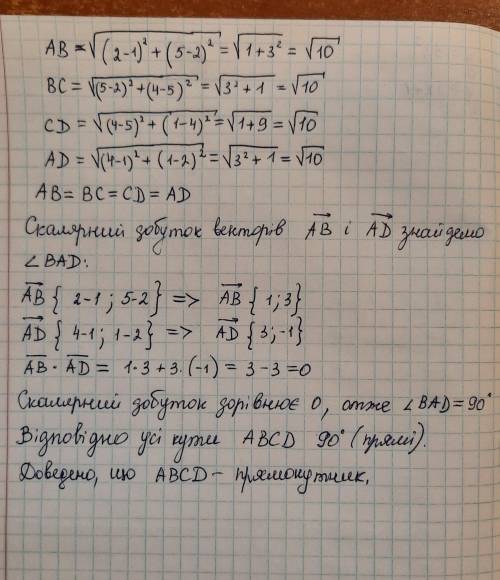 AB = √(2-1)² + (5-2)² = √1+3² = √10
BC = √(5-2)² + (4-5)² = √3²+1 = √10
CD = √(4-5)² + (1-4)² = √1+9 = √10
AD = √(4-1)² + (1-2)² = √3²+1 = √10
AB = BC = CD = AD
Скалярний добуток векторів AB⃗ і AD⃗ знайдемо
∠BAD:
AB⃗ { 2-1 ; 5-2 } => AB⃗ { 1; 3 }
AD⃗ { 4-1 ; 1-2 } => AD⃗ { 3; -1 }
AB⃗ · AD⃗ = 1·3 + 3·(-1) = 3 - 3 = 0
Скалярний добуток дорівнює 0, отже ∠BAD = 90°
Відповідно усі кути ABCD 90° (прямі).
Доведено, що ABCD - прямокутник.